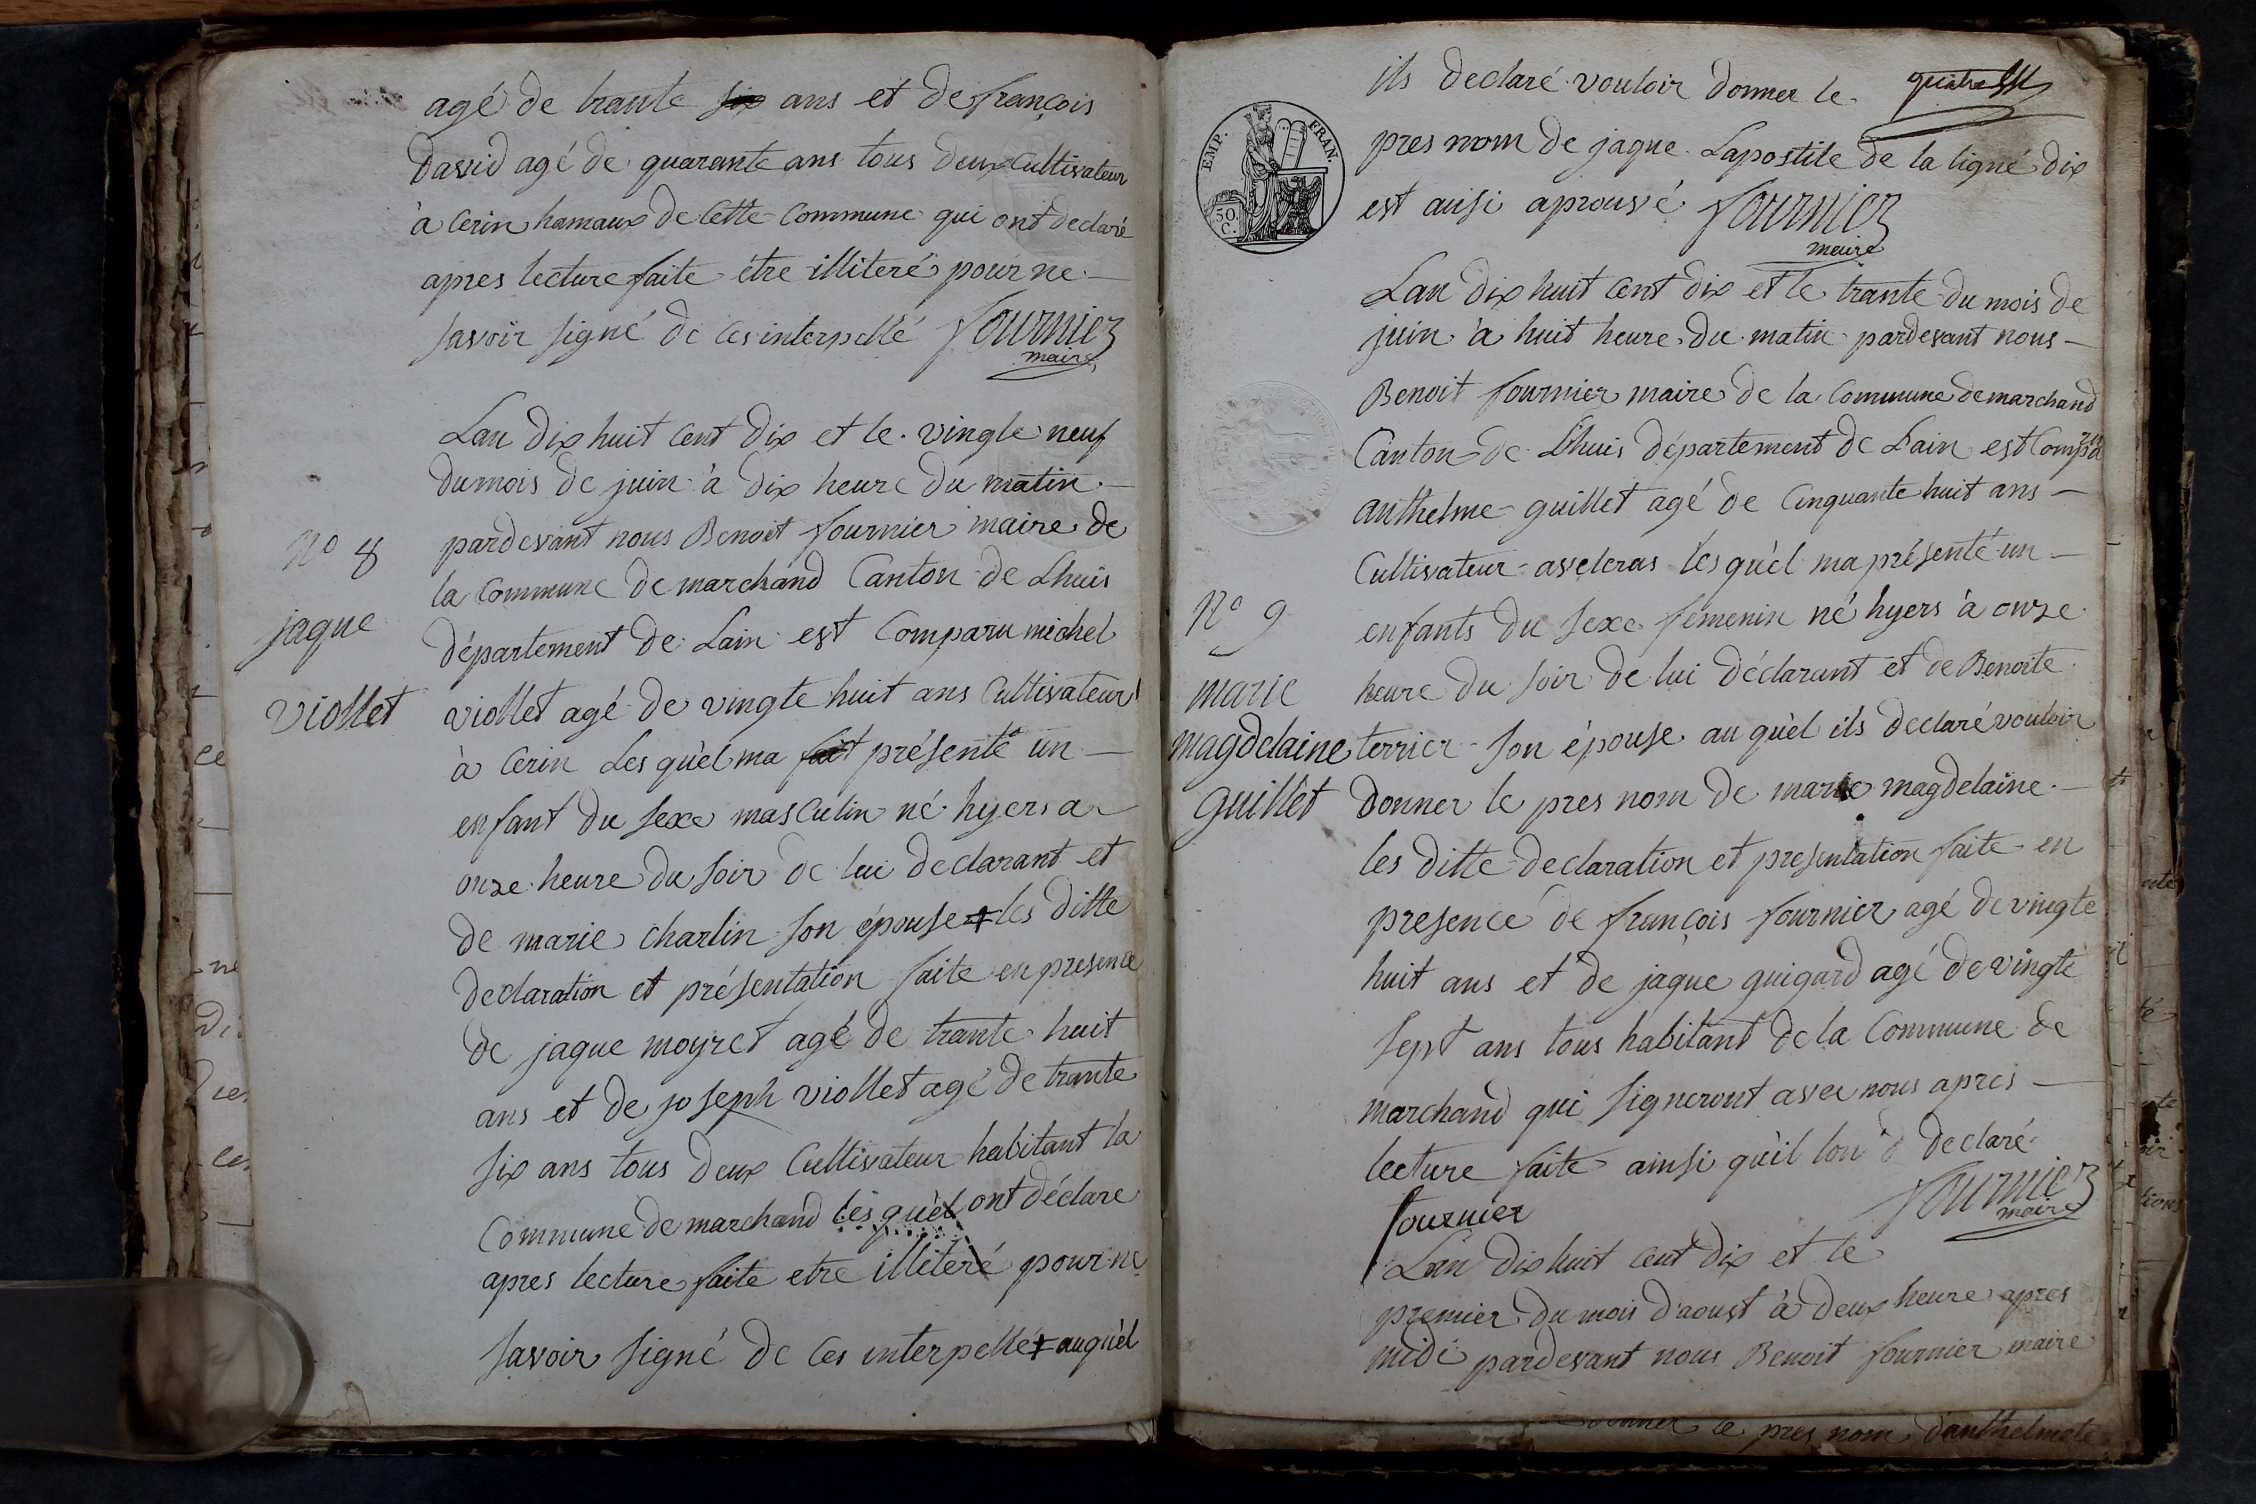 agé de trante six ans et de françois
david agé de quarante ans tous deux Cultivateur
à Cerin hamaux de Cette Commune qui ont declaré
apres lecture faite être illiteré pour ne
savoir signé de ces interpellé fournier
maire
Lan dix huit Cent dix et le vingte neuf
du mois de juin à dix heure du matin
N° 8
pardevant nous Benoit fournier maire de
la Commune de marchand Canton de Lhuis
jaque
département de Lain est Comparu michel
viollet
viollet agé de vingte huit ans Cultivateur
à Cerin Les quèl ma fait présenté un
enfant du sexe masculin né hyers a
onze heure du soir de lui declarant et
de marie charlin son épouse + les ditte
declaration et présentation faite en presence
de jaque moyret agé de trante huit
ans et de joseph viollet agé de trante
six ans tous deux Cultivateur habitant la
Commune de marchand les quèl ont déclare
apres lecture faite etre illiteré pour ne
savoir signé de ces interpellé + auquèl
ils declaré vouloir donner le
quatre
pres nom de jaque Lapostile de la ligne dix
est ainsi aprouvé fournier
maire
EMP. FRAN.
50.
C.
Lan dix huit Cent dix et le trante du mois de
juin à huit heure du matin pardevant nous
Benoit fournier maire de la Commune de marchand
Canton de Lhuis département de Lain est Comparu
anthelme guillet agé de Cinquante huit ans
Cultivateur aveleras les quèl ma présenté un
N° 9
enfants du sexe femenin né hyers à onze
marie
heure du soir de lui déclarant et de Benoite
magdelaine
terrier son épouse au quèl ils declaré vouloir
guillet
donner le pres nom de marie magdelaine
les ditte declaration et presentation faite en
presence de françois fournier agé de vingte
huit ans et de jaque guigard agé de vingte
sept ans tous habitant de la Commune de
marchand qui signeront avec nous apres
lecture faite ainsi quèil lon declaré
fournier fournier
maire
Lan dix huit cent dix et le
premier du mois d'aoust à deux heure apres
midi pardevant nous Benoit fournier maire
donner le pres nom danthelmete